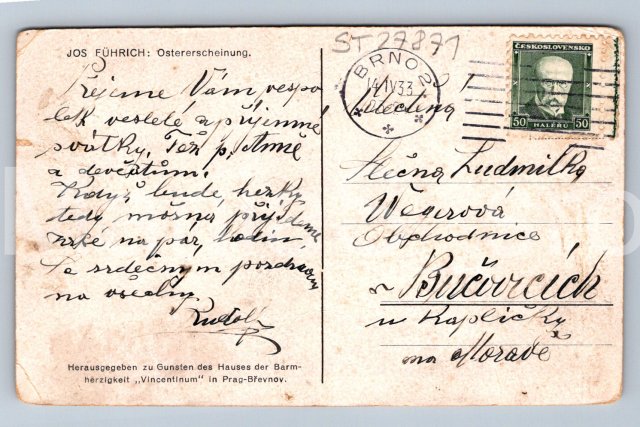 JOS FÜHRICH: Ostererscheinung.
Přejeme Vám vespo
lek veselé a příjemné
svátky. Též p. Anně
a děvčatům.
Když bude hezky
tedy možná přijdeme
na pár hodin.
Se srdečným pozdravem
na všechny
Rudolf
Herausgegeben zu Gunsten des Hauses der Barm-
herzigkeit „Vincentinum" in Prag-Břevnov.
ST27871
BRNO 2
14.IV.33
ČESKOSLOVENSKO
50 HALÉŘŮ 50
Slečna
Slečna Ludmilka
Wégrová
Obchodnice
v Bučovicích
u Kapličky
na Moravě